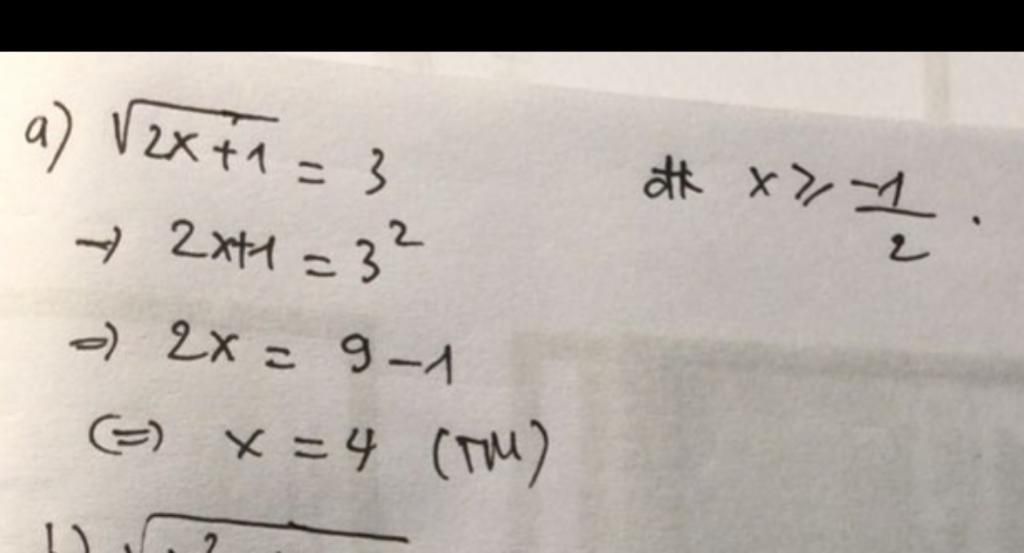 a) √(2x+1) = 3 đk x ⩾ -1/2 .
→ 2x+1 = 3²
⇒ 2x = 9-1
(=) x = 4 (TM)
b) √